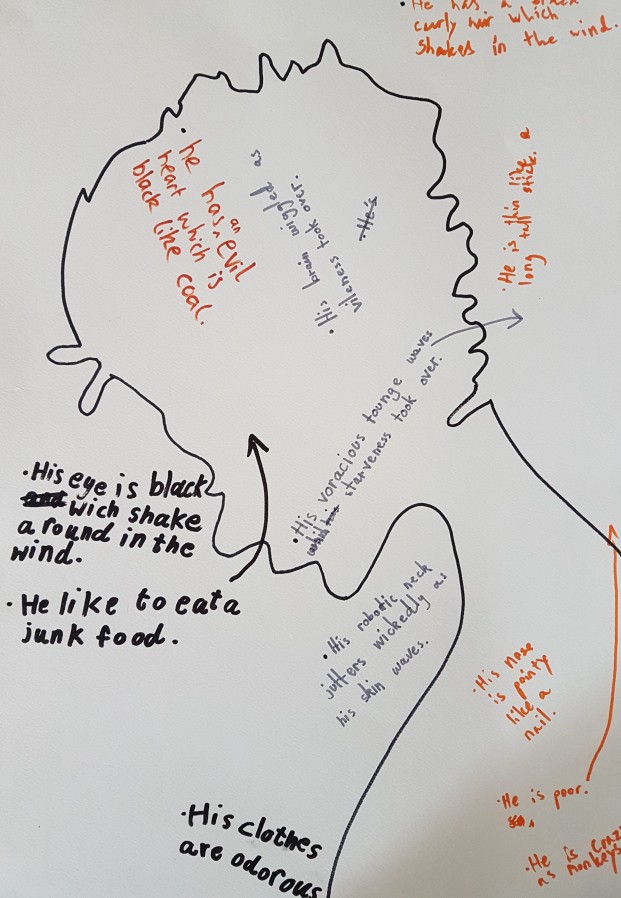 • He has a black
curly hair which
shakes in the wind.
• he has an evil
heart which is
black like coal.
• His brain wiggled as
vileness took over.
He's
• He is thin like a
long tall stick.
• His voracious tounge waves
starveness took over.
• His eye is black
and wich shake
a round in the
wind.
• He like to eat a
junk food.
• His robotic neck
jutters wickedly as
his skin waves.
• His nose
is pointy
like a
nail.
• He is poor.
• He is crazy
as monkeys
• His clothes
are odorous